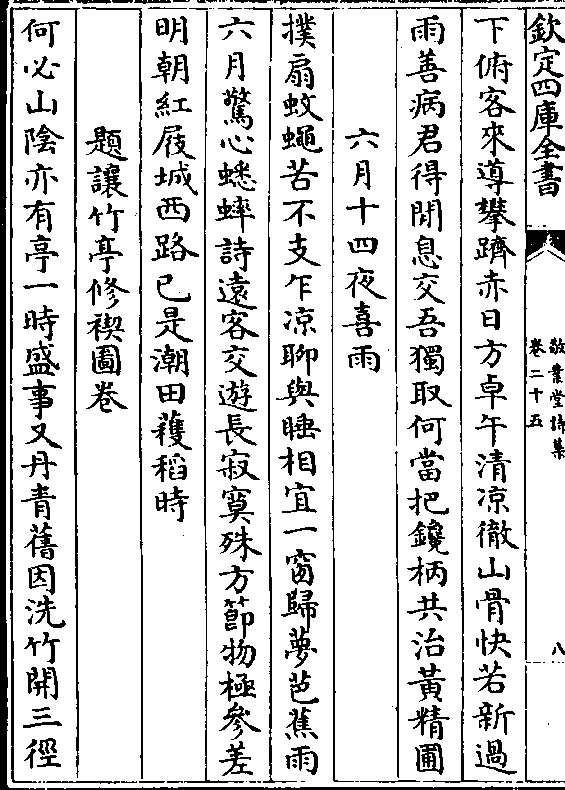 欽定四庫全書
敬業堂詩集
卷二十五
八
下俯客來導攀躋赤日方卓午清凉徹山骨快若新過
雨善病君得閒息交吾獨取何當把鑱柄共治黃精圃
六月十四夜喜雨
撲扇蚊蠅苦不支乍凉聊與睡相宜一窗歸夢芭蕉雨
六月驚心蟋蟀詩遠客交遊長寂寞殊方節物極參差
明朝紅屐城西路已是潮田穫稻時
題讓竹亭修禊圖卷
何必山陰亦有亭一時盛事又丹青舊因洗竹開三徑